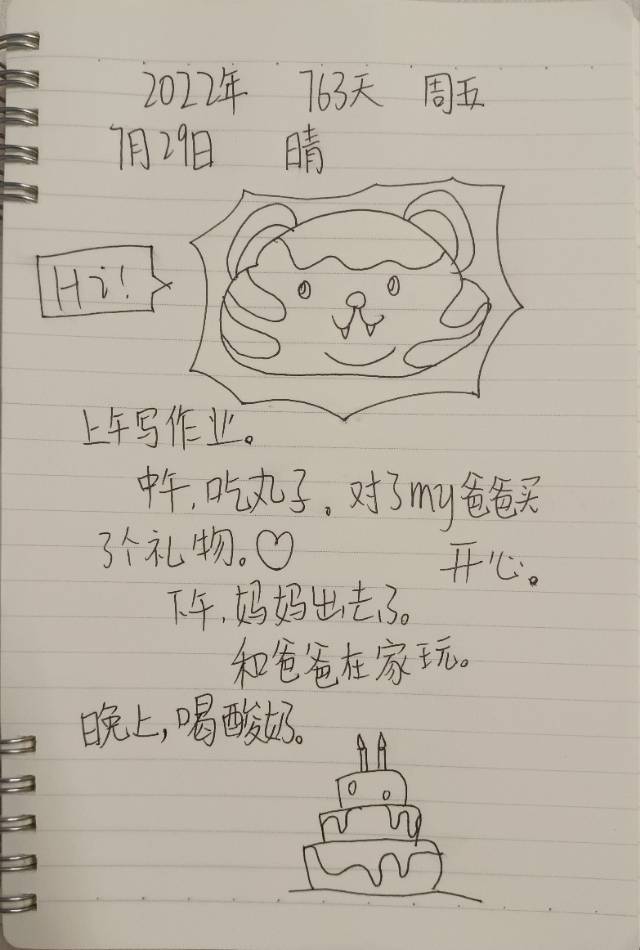 2022年 763天 周五
7月29日 晴
Hi!
上午写作业。
中午,吃丸子。对了my爸爸买
了个礼物。♡ 开心。
下午,妈妈出去了。
和爸爸在家玩。
晚上,喝酸奶。